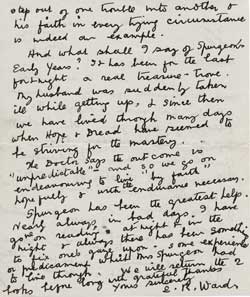 step out of one trouble into another &
his faith in every trying circumstance
is indeed an example.
And what shall I say of Spurgeon's
Early Years? It has been for the last
fortnight a real treasure-trove.
My husband was suddenly taken
ill while getting up, & since then
we have lived through many days
when Hope & Dread have seemed to
be striving for the mastery.
The Doctor says the outcome is
"unpredictable" and so we go on
endeavouring to live "by faith"
hopefully & with endurance necessary.
Spurgeon has been the greatest help.
Nearly always, in bad days, I have
gone on reading at night & in the
night & always there has been something
to fix one's eyes upon - some experience
or predicament which Mrs Spurgeon had
to live through. We will return the 2
books before long with grateful thanks
Yours sincerely
E. R. Ward